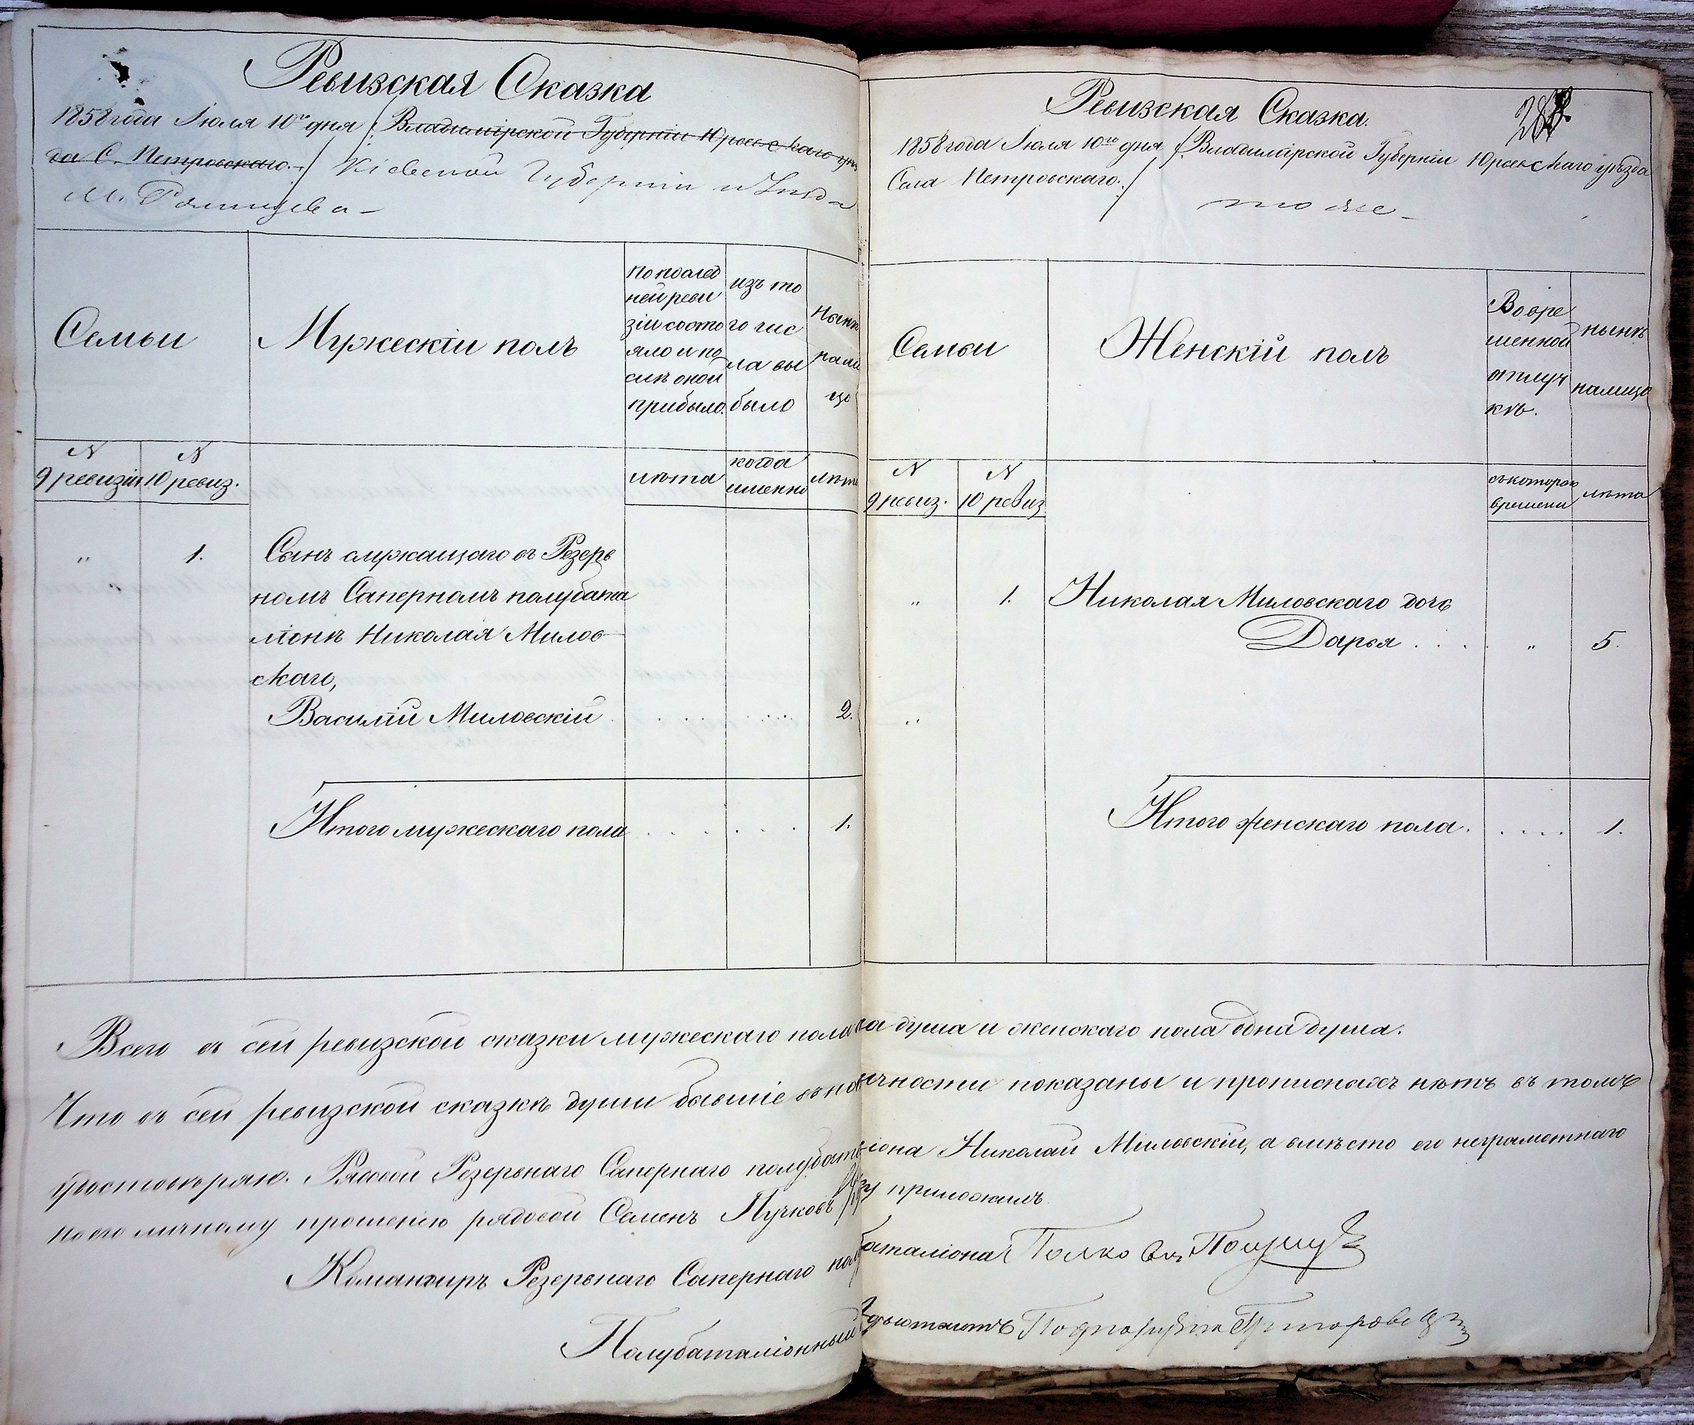 Ревизская Сказка
1858 года Іюля 10го дня / Владимірской Губерніи Юрьевскаго уѣз
да С. Петровскаго. / Кіевской Губерніи и Уѣзда
М.
Семьи
Мужескій полъ
По послѣд
ней реви
зіи состо
яло и по
слѣ оной
прибыло.
изъ то
го чис
ла вы
было
Нынѣ
нали
цо
N
9 ревизіи
N
10 ревиз.
лѣта
когда
именно
лѣта
„ 1. Сынъ служащаго въ Резерв
„
номъ Саперномъ полубата
ліонѣ Николая Милов
скаго,
Василій Миловскій . . . . . . . 2.
Итого мужескаго пола . . . . . . . 1.
Ревизская Сказка.
288.
1858 года Іюля 10го дня / Владимірской Губерніи Юрьевскаго уѣзда
Села Петровскаго. /
тоже
Семьи
Женскій полъ
Во вре
менной
отлуч
кѣ.
нынѣ
налицо
N
9 ревиз.
N
10 ревиз
съ котораго
времени
лѣта
„ 1. Николая Миловскаго дочь
Дарья . . . . „ 5.
„
Итого женскаго пола. . . . . 1.
Всего въ сей ревизской сказки мужескаго пола на душа и женскаго пола одна душа.
Что въ сей ревизской сказкѣ души бывшіе въ наличности показаны и прописныхъ нѣтъ въ томъ
удостовѣряю. Рядовой Резервнаго Сапернаго полубаталіона Николай Миловскій, а вмѣсто его неграмотнаго
по его личному прошенію рядовой Семенъ Пучковъ руку приложилъ
Командиръ Резервнаго Сапернаго полубаталіона
Полубаталіонный Адъютантъ